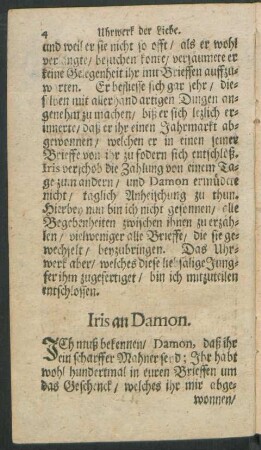 4 Uhrwerk der Liebe.
und weil er sie nicht so offt / als er wohl
verlangte / besuchen konte / versaumete er
keine Gelegenheit ihr mit Brieffen auffzu-
warten. Er befliesse sich gar sehr / die-
selben mit allerhand artigen Dingen an-
genehm zu machen / biß er sich letzlich er-
innerte / daß er ihr einen Jahrmarkt abge-
wonnen / welchen er in einen seiner
Brieffe von ihr zu fodern sich entschloß.
Iris verschob die Zahlung von einem Ta-
ge zum andern / und Damon ermüdete
nicht / täglich Anheischung zu thun.
Hierbey nun bin ich nicht gesonnen / alle
Begebenheiten zwischen ihnen zu erzäh-
len / vielweniger alle Brieffe / die sie ge-
wechselt / beyzubringen. Das Uhr-
werk aber / welches diese liebsälige Jung-
fer ihm zugefertiget / bin ich mitzuteilen
entschlossen.
Iris an Damon.
ICh muß bekennen / Damon, daß ihr
ein scharffer Mahner seyd; Ihr habt
wohl hundertmal in euren Brieffen um
das Geschenck / welches ihr mir abge-
wonnen /